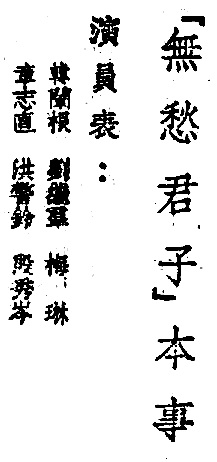 「無愁君子」本事
演員表：
韓蘭根　劉繼羣　梅琳
章志直　洪警鈴　殷秀岑